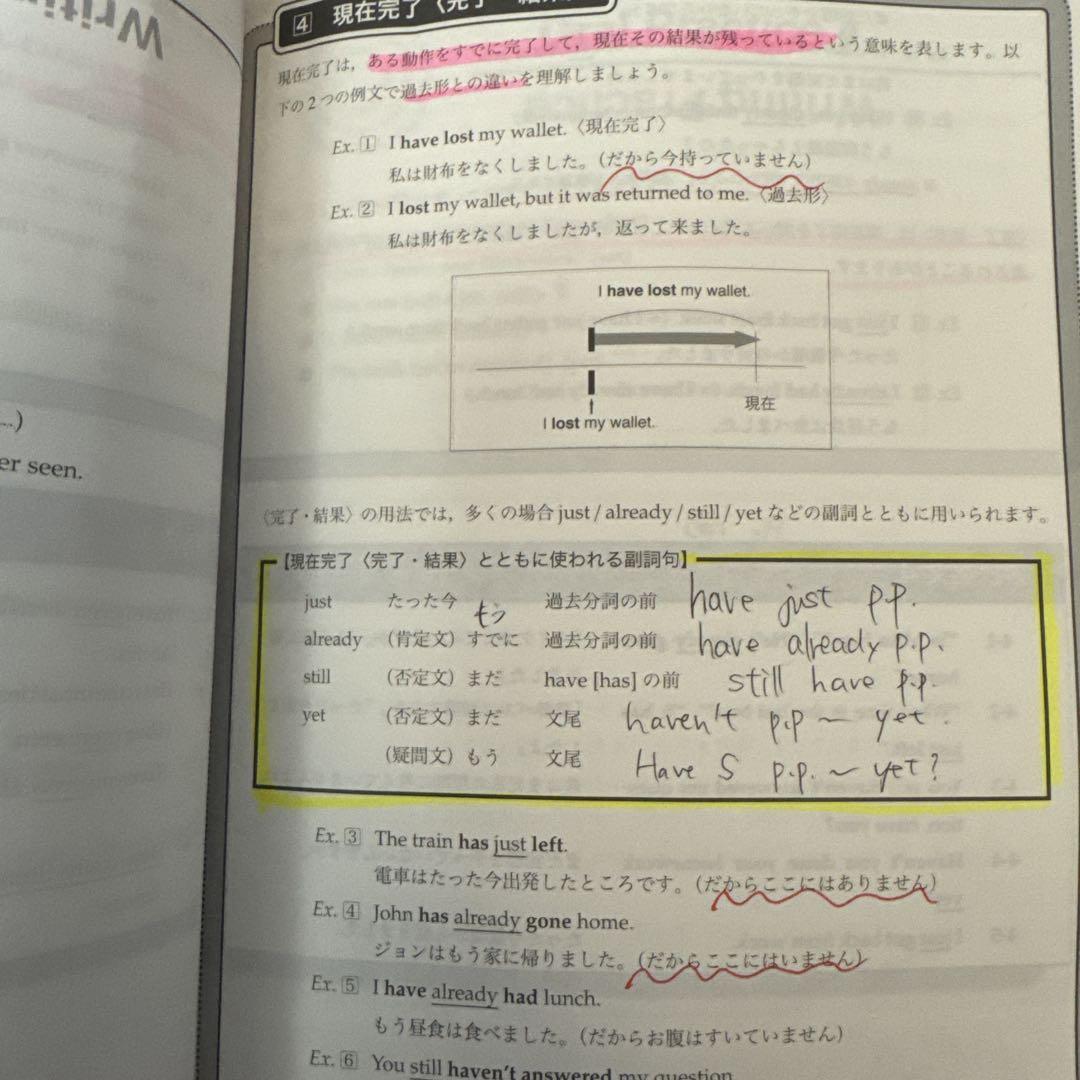 Writin
...)
er seen.
4 現在完了〈完了・結果〉
現在完了は，ある動作をすでに完了して，現在その結果が残っているという意味を表します。以
下の2つの例文で過去形との違いを理解しましょう。
Ex. 1 I have lost my wallet.〈現在完了〉
私は財布をなくしました。（だから今持っていません）
Ex. 2 I lost my wallet, but it was returned to me.〈過去形〉
私は財布をなくしましたが，返って来ました。
I have lost my wallet.
現在
I lost my wallet.
〈完了・結果〉の用法では，多くの場合 just / already / still / yet などの副詞とともに用いられます。
【現在完了〈完了・結果〉とともに使われる副詞句】
just たった今 過去分詞の前 have just p.p.
もう
already （肯定文）すでに 過去分詞の前 have already p.p.
still （否定文）まだ have [has] の前 still have p.p.
yet （否定文）まだ 文尾 haven't p.p ~ yet.
（疑問文）もう 文尾 Have S p.p. ~ yet?
Ex. 3 The train has just left.
電車はたった今出発したところです。（だからここにはありません）
Ex. 4 John has already gone home.
ジョンはもう家に帰りました。（だからここにはいません）
Ex. 5 I have already had lunch.
もう昼食は食べました。（だからお腹はすいていません）
Ex. 6 You still haven't answered my question.